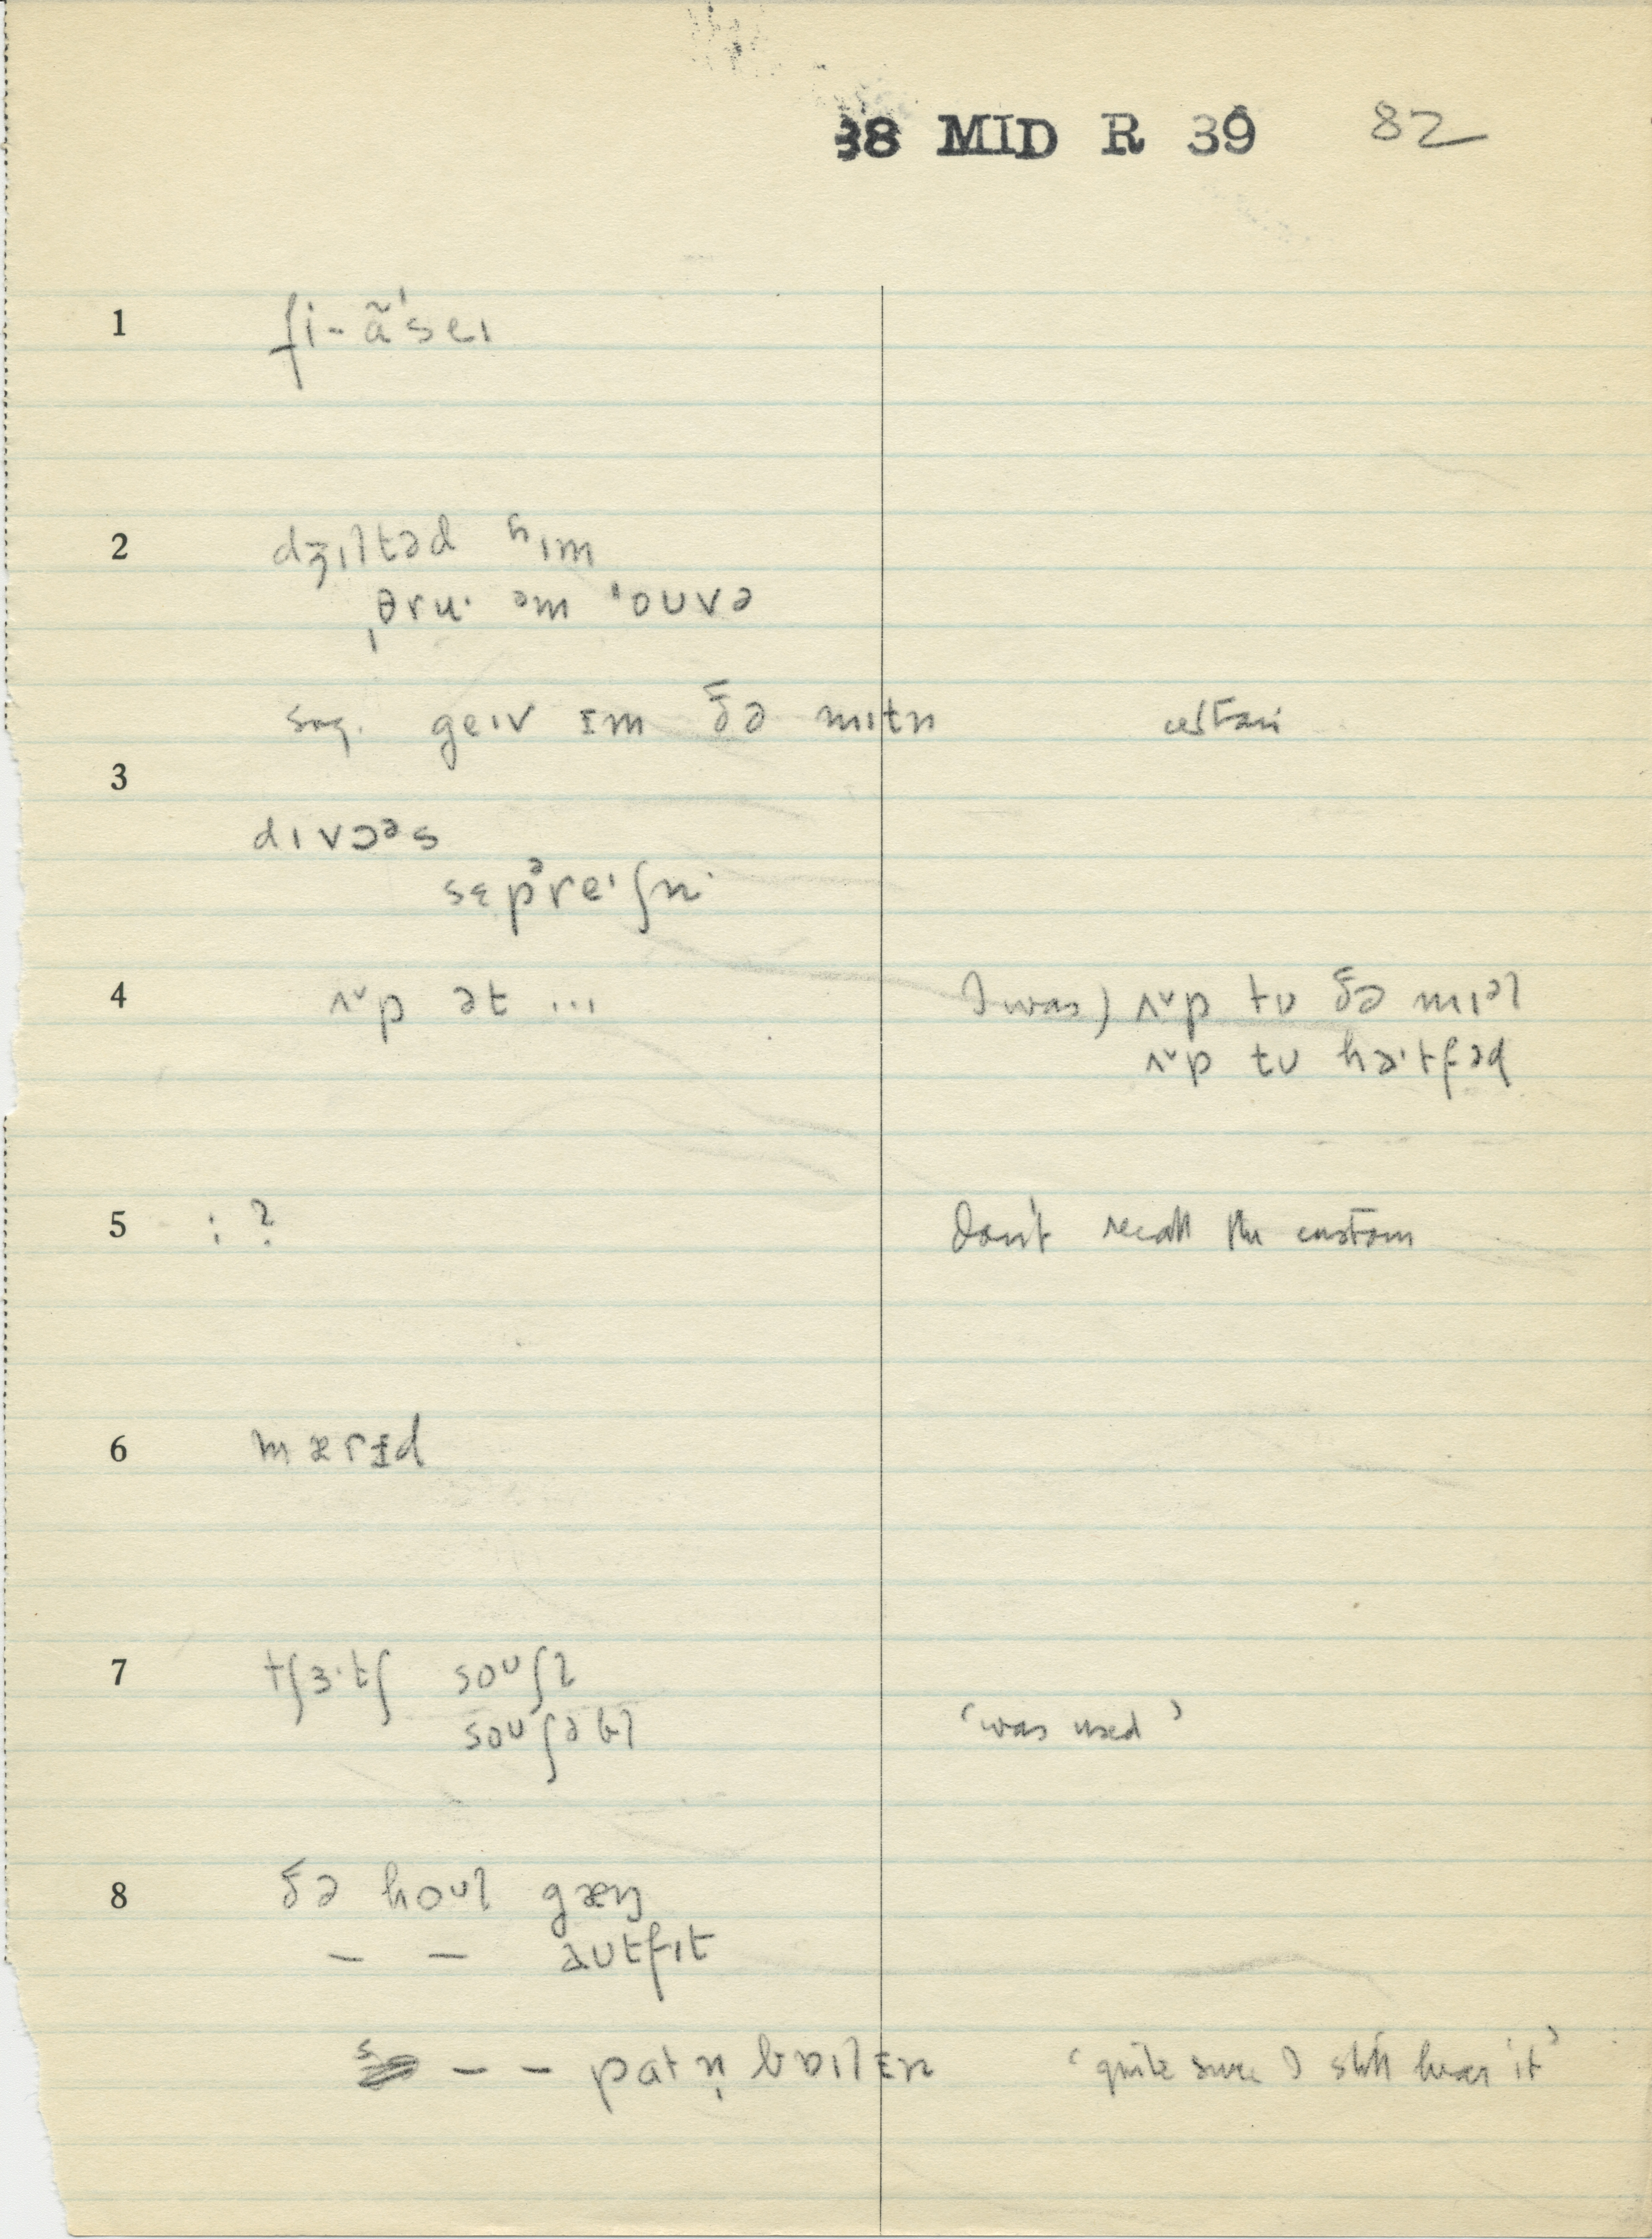 38 MID R 39 82
1 fi-ã'seɪ
2 dʒɪltəd ʰɪm
ˌθru· əm ˈoʊvə
sug. geɪv ɪm ðə mɪtn certain
3
dɪvɔəs
sɛpᵊreɪʃn
4 ʌ˅p ət ... I was) ʌ˅p tʊ ðə mɪəl
ʌ˅p tʊ ha·tfəd
5 : ? don't recall the custom
6 mærɨd
7 tʃɜ·tʃ soʊʃl
soʊʃəbl 'was used'
8 ðə hoʊl gæŋ
— — aʊtfɪt
s — — pat n̩ bɒɪlɪn 'quite sure I still hear it'